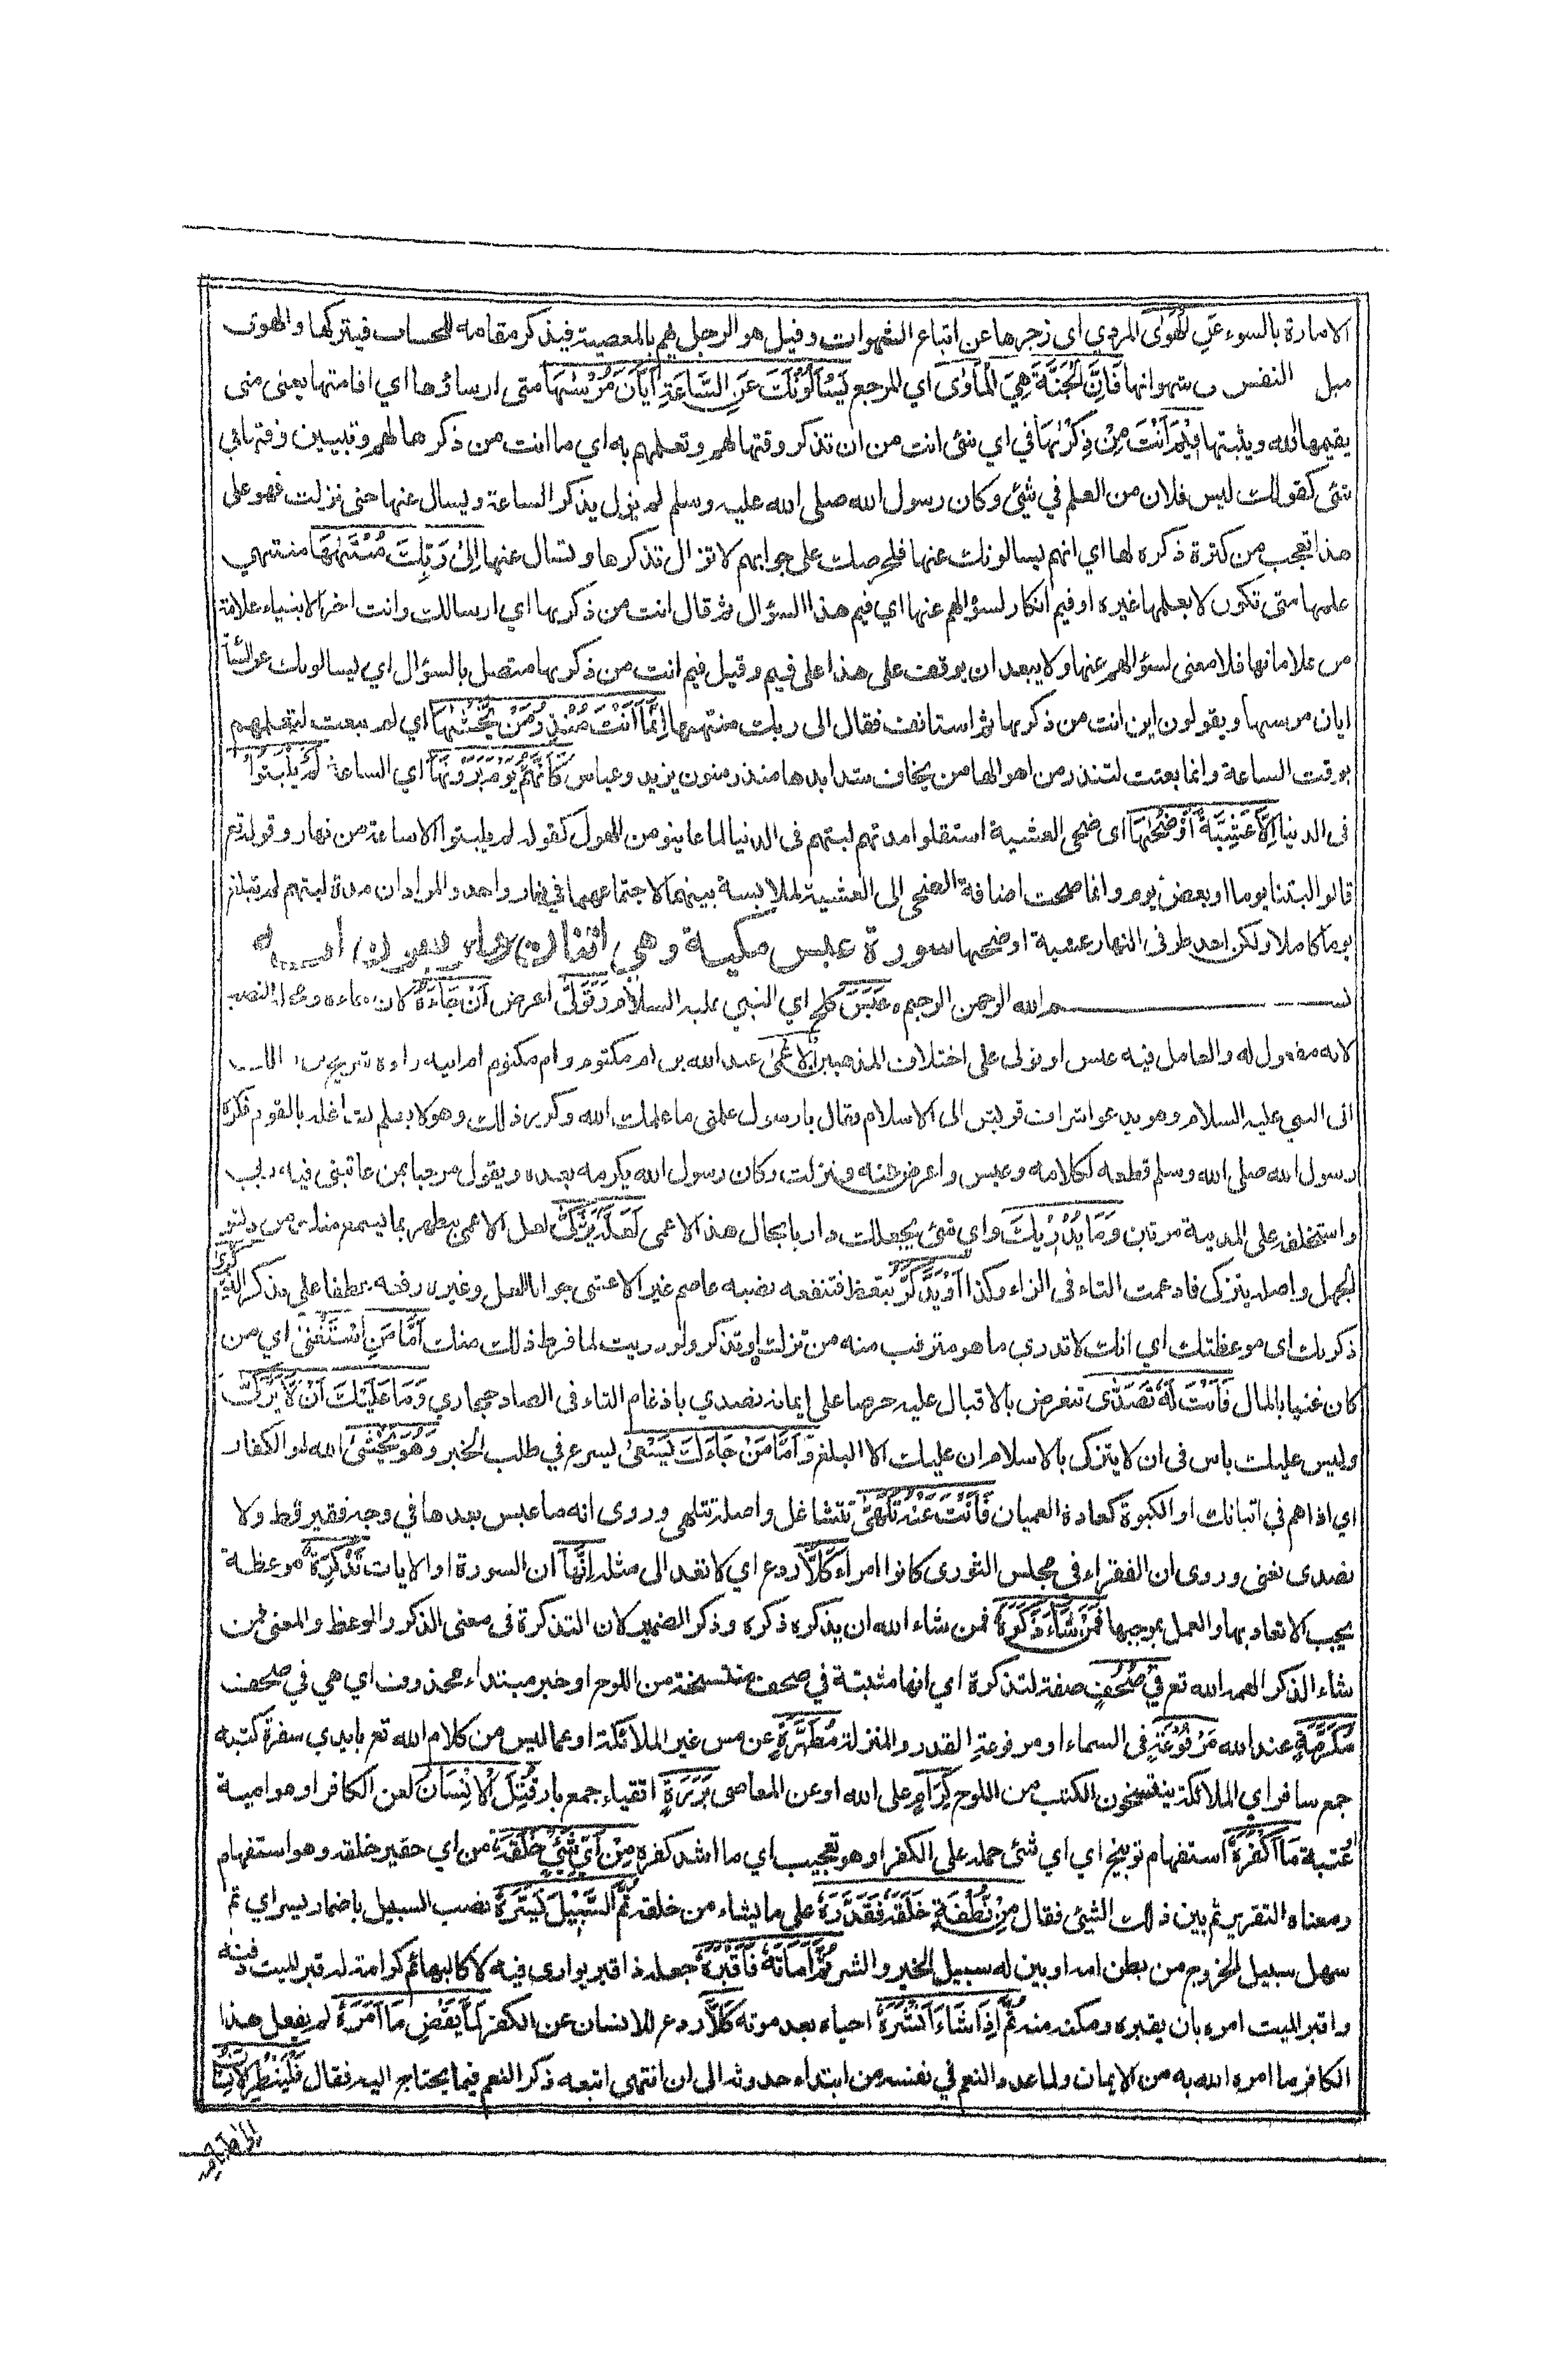 الامارة بالسوء عَنِ الْهَوٰى المردي اي زجرها عن اتباع الشهوات وقيل هو الرجل يهم بالمعصية فيذكر مقامه للحساب فيتركها والهوى
ميل النفس الى شهواتها فَاِنَّ الْجَنَّةَ هِيَ الْمَاْوٰى اي المرجع يَسْاَلُوْنَكَ عَنِ السَّاعَةِ اَيَّانَ مُرْسٰىهَا متى ارساؤها اي اقامتها يعني متى
يقيمها الله ويثبتها فِيْمَ اَنْتَ مِنْ ذِكْرٰىهَا في اي شئ انت من ان تذكر وقتها لهم وتعلمهم به اي ما انت من ذكرها لهم وتبيين وقتها في
شئ كقولك ليس فلان من العلم في شئ وكان رسول الله صلى الله عليه وسلم لم يزل يذكر الساعة ويسال عنها حتى نزلت فهو على
هذا تعجب من كثرة ذكره لها اي انهم يسالونك عنها فلحرصك على جوابهم لا تزال تذكرها وتسال عنها اِلٰى رَبِّكَ مُنْتَهٰىهَا منتهي
علمها متى تكون لا يعلمها غيره او فيم انكار لسؤالهم عنها اي فيم هذا السؤال ثم قال انت من ذكرىها اي ارسالك وانت اخر الانبياء علامة
من علاماتها فلا معنى لسؤالهم عنها ولا يبعد ان يوقف على هذا على فيم وقيل فيم انت من ذكرىها متصل بالسؤال اي يسالونك عن الساعة
ايان مرسىها ويقولون اين انت من ذكرىها ثم استانف فقال الى ربك منتهىها اِنَّمَا اَنْتَ مُنْذِرُ مَنْ يَّخْشٰىهَا اي لم تبعث لتعلمهم
بوقت الساعة وانما بعثت لتنذر من اهوالها من يخاف شدايدها منذر منون يزيد وعباس كَاَنَّهُمْ يَوْمَ يَرَوْنَهَا اي الساعة لَمْ يَلْبَثُوْا
في الدنيا اِلَّا عَشِيَّةً اَوْ ضُحٰىهَا اي ضحى العشية استقلوا مدة لبثهم في الدنيا لما عاينوا من الهول كقوله لم يلبثوا الا ساعة من نهار وقوله تع
قالوا لبثنا يوما او بعض يوم وانما صحت اضافة الضحى الى العشية لملابسة بينهما لاجتماعهما في نهار واحد والمراد ان مدة لبثهم لم تبلغ
يوما كاملا ولكن احد طرفي النهار عشية او ضحىها سورة عبس مكية وهي اثنتان واربعون اية
بسم الله الرحمن الرحيم عَبَسَ كلح اي النبي عليه السلام وَتَوَلّٰى اعرض اَنْ جَاءَهُ لان جاءه ومحله النصب
لانه مفعول له والعامل فيه عبس او تولى على اختلاف المذهبين الْاَعْمٰى عبد الله بن ام مكتوم وام مكتوم ام ابيه
اتى النبي عليه السلام وهو يدعو اشراف قريش الى الاسلام وقال يا رسول علمني مما علمك الله وكرر ذلك وهو لا يعلم تشاغله بالقوم فكره
رسول الله صلى الله وسلم قطعه لكلامه وعبس واعرض عنه ونزلت وكان رسول الله يكرمه بعده ويقول مرحبا بمن عاتبني فيه ربي
واستخلفه على المدينة مرتين وَمَا يُدْرِيْكَ واي شئ يجعلك داريا بحال هذا الاعمى لَعَلَّهُ يَزَّكّٰى لعل الاعمى يطهر بما يسمع منك من دنس
الجهل واصله يتزكى فادغمت التاء في الزاء وكذا اَوْ يَذَّكَّرُ يتعظ فتنفعه نصبه عاصم غير الاعشى جوابا للعل وغيره رفعه عطفا على يذكر الذِّكْرٰى
ذكراك اي موعظتك اي انك لا تدري ما هو مترقب منه من تزك او تذكر ولو دريت لما فرط ذلك منك اَمَّا مَنِ اسْتَغْنٰى اي من
كان غنيا بالمال فَاَنْتَ لَهُ تَصَدّٰى تتعرض بالاقبال عليه حرصا على ايمانه تصدى باذغام التاء في الصاد حجازي وَمَا عَلَيْكَ اَنْ لَّا يَزَّكّٰى
وليس عليك باس في ان لا يتزكى بالاسلام ان عليك الا البلغ وَاَمَّا مَنْ جَاءَكَ يَسْعٰى يسرع في طلب الخير وَهُوَ يَخْشٰى الله او الكفار
اي اذاهم في اتيانك او الكبوة كعادة العميان فَاَنْتَ عَنْهُ تَلَهّٰى تتشاغل واصله تتلهى وروى انه ما عبس بعدها في وجه فقير قط ولا
تصدى لغني وروى ان الفقراء في مجلس الثوري كانوا امراء كَلَّا ردع اي لا تعد الى مثله اِنَّهَا ان السورة او الايات تَذْكِرَةٌ موعظة
يجب الاتعاظ بها والعمل بموجبها فَمَنْ شَاءَ ذَكَرَهُ فمن شاء الله ان يذكره ذكره وذكر الضمير لان التذكرة في معنى الذكر والوعظ والمعنى فمن
شاء الذكر الهمه الله تع فِيْ صُحُفٍ صفة لتذكرة اي انها مثبتة في صحف منتسخة من اللوح او خبر مبتداء محذوف اي هي في صحف
مُكَرَّمَةٍ عند الله مَرْفُوْعَةٍ في السماء او مرفوعة القدر والمنزلة مُطَهَّرَةٍ عن مس غير الملائكة او عما ليس من كلام الله تع بايدي سفرة كتبة
جمع سافر اي الملائكة ينتسخون الكتب من اللوح كِرَامٍ على الله او عن المعاصي بَرَرَةٍ اتقياء جمع بار قُتِلَ الْاِنْسَانُ لعن الكافر او هو امية
عتبة مَا اَكْفَرَهُ استفهام توبيخ اي اي شئ حمله على الكفر او هو تعجيب اي ما اشد كفره مِنْ اَيِّ شَيْءٍ خَلَقَهُ من اي حقير خلقه وهو استفهام
ومعناه التقرير ثم بين ذلك الشئ فقال مِنْ نُّطْفَةٍ خَلَقَهُ فَقَدَّرَهُ على ما يشاء من خلقه ثُمَّ السَّبِيْلَ يَسَّرَهُ نصب السبيل باضمار يسر اي ثم
سهل سبيل الخروج من بطن امه او بين له سبيل الخير والشر ثُمَّ اَمَاتَهُ فَاَقْبَرَهُ جعله ذا قبر يوارى فيه لا كالبهائم كرامة له قبر الميت دفنه
واقبر الميت امره بان يقبره ومكنه منه ثُمَّ اِذَا شَاءَ اَنْشَرَهُ احياه بعد موته كَلَّا ردع للانسان عن الكفر لَمَّا يَقْضِ مَا اَمَرَهُ لم يفعل هذا
الكافر ما امره الله به من الايمان ولما عدد النعم في نفسه من ابتداء حدوثه الى ان انتهى اتبعه ذكر النعم فيما يحتاج اليه فقال فَلْيَنْظُرِ الْاِنْسَانُ
الى طعامه